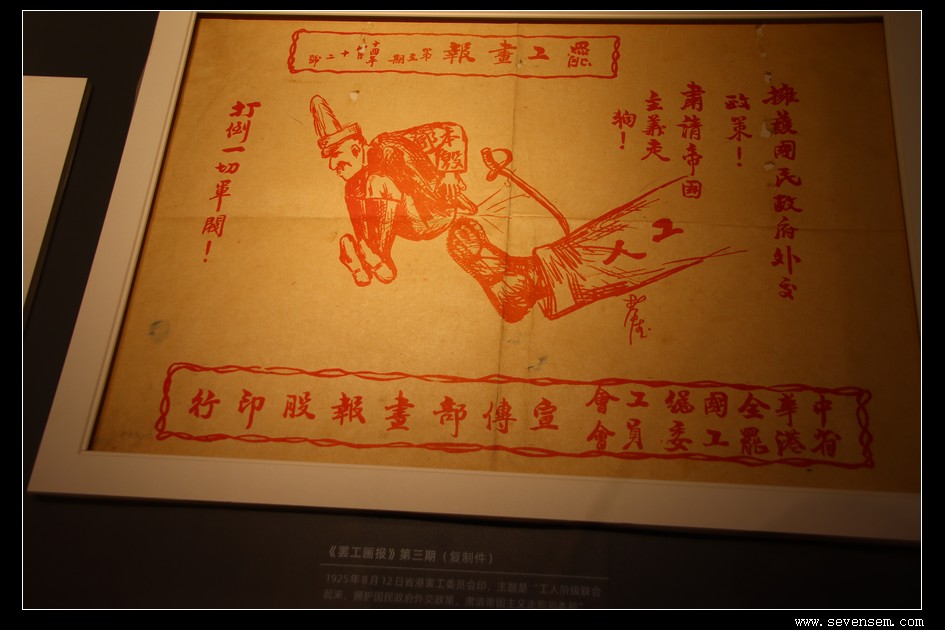 罷工畫報 第三期 十四年八月十二號
擁護國民政府外交
政策！
肅清帝國
主義走
狗！
本殷
鄧
工人
打倒一切軍閥！
中華全國總工會
省港罷工委員會
宣傳部畫報股印行
《罢工画报》第三期（复制件）
1925年8月12日省港罢工委员会印，主题是“工人阶级联合
起来，拥护国民政府外交政策，肃清帝国主义走狗邓本殷”
www.sevensem.com